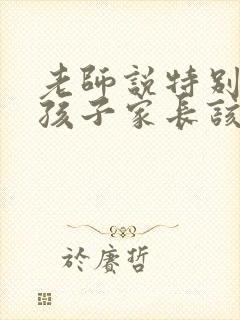 老師說特別
孩子家長該
於賡哲